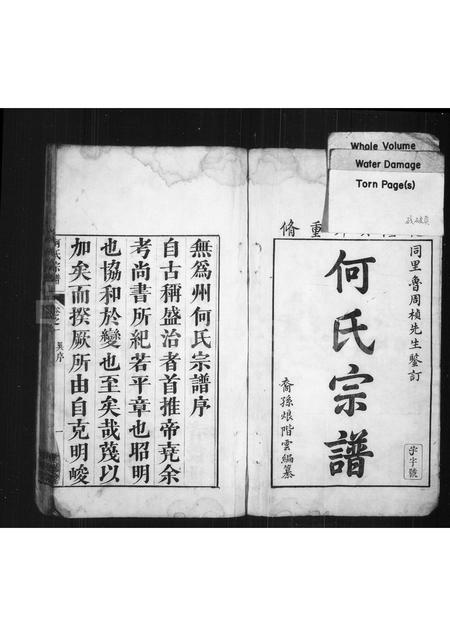 Whole Volume
Water Damage
Torn Page(s)
重脩
同里魯周楨先生鑒訂
何氏宗譜
裔孫烺階雲編纂
字號
無爲州何氏宗譜序
自古稱盛治者首推帝堯余
考尚書所紀若平章也昭明
也協和於變也至矣哉蔑以
加矣而揆厥所由自克明峻
何氏宗譜
序
一